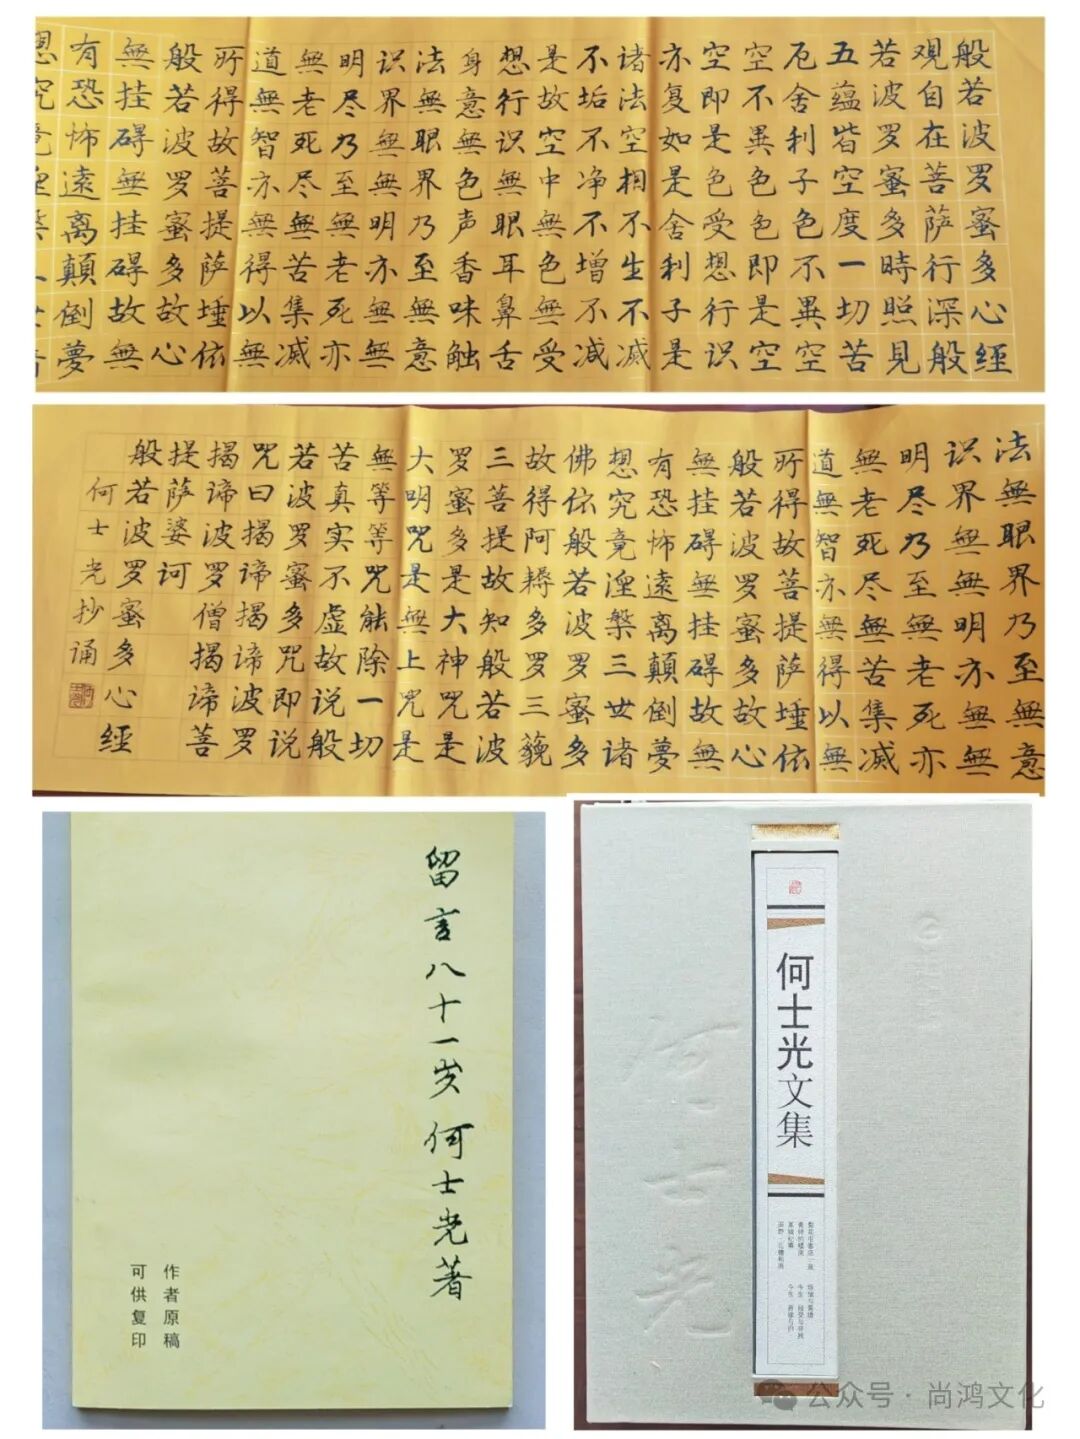 般若波罗蜜多心经
观自在菩萨行深般
若波罗蜜多時照见
五蕴皆空度一切苦
厄舍利子色不異空
空不異色色即是空
空即是色受想行识
亦复如是舍利子是
诸法空相不生不滅
不垢不净不增不减
是故空中無色無受
想行识無眼耳鼻舌
身意無色声香味触
法無眼界乃至無意
识界無無明亦無無
明尽乃至無老死亦
無老死尽無苦集滅
道無智亦無得以無
所得故菩提萨埵依
般若波罗蜜多故心
無挂碍無挂碍故無
有恐怖遠离颠倒夢
想究竟涅槃
法無眼界乃至無意
识界無無明亦無無
明尽乃至無老死亦
無老死尽無苦集滅
道無智亦無得以無
所得故菩提萨埵依
般若波罗蜜多故心
無挂碍無挂碍故無
有恐怖遠离颠倒夢
想究竟涅槃三世诸
佛依般若波罗蜜多
故得阿耨多罗三藐
三菩提故知般若波
罗蜜多是大神咒是
大明咒是無上咒是
無等等咒能除一切
苦真实不虚故说般
若波罗蜜多咒即说
咒曰揭谛揭谛波罗
揭谛波罗僧揭谛菩
提萨婆诃
般若波罗蜜多心经
何士光抄诵
留言八十一岁 何士光著
作者原稿
可供复印
何士光文集
何士光
公众号·尚鸿文化